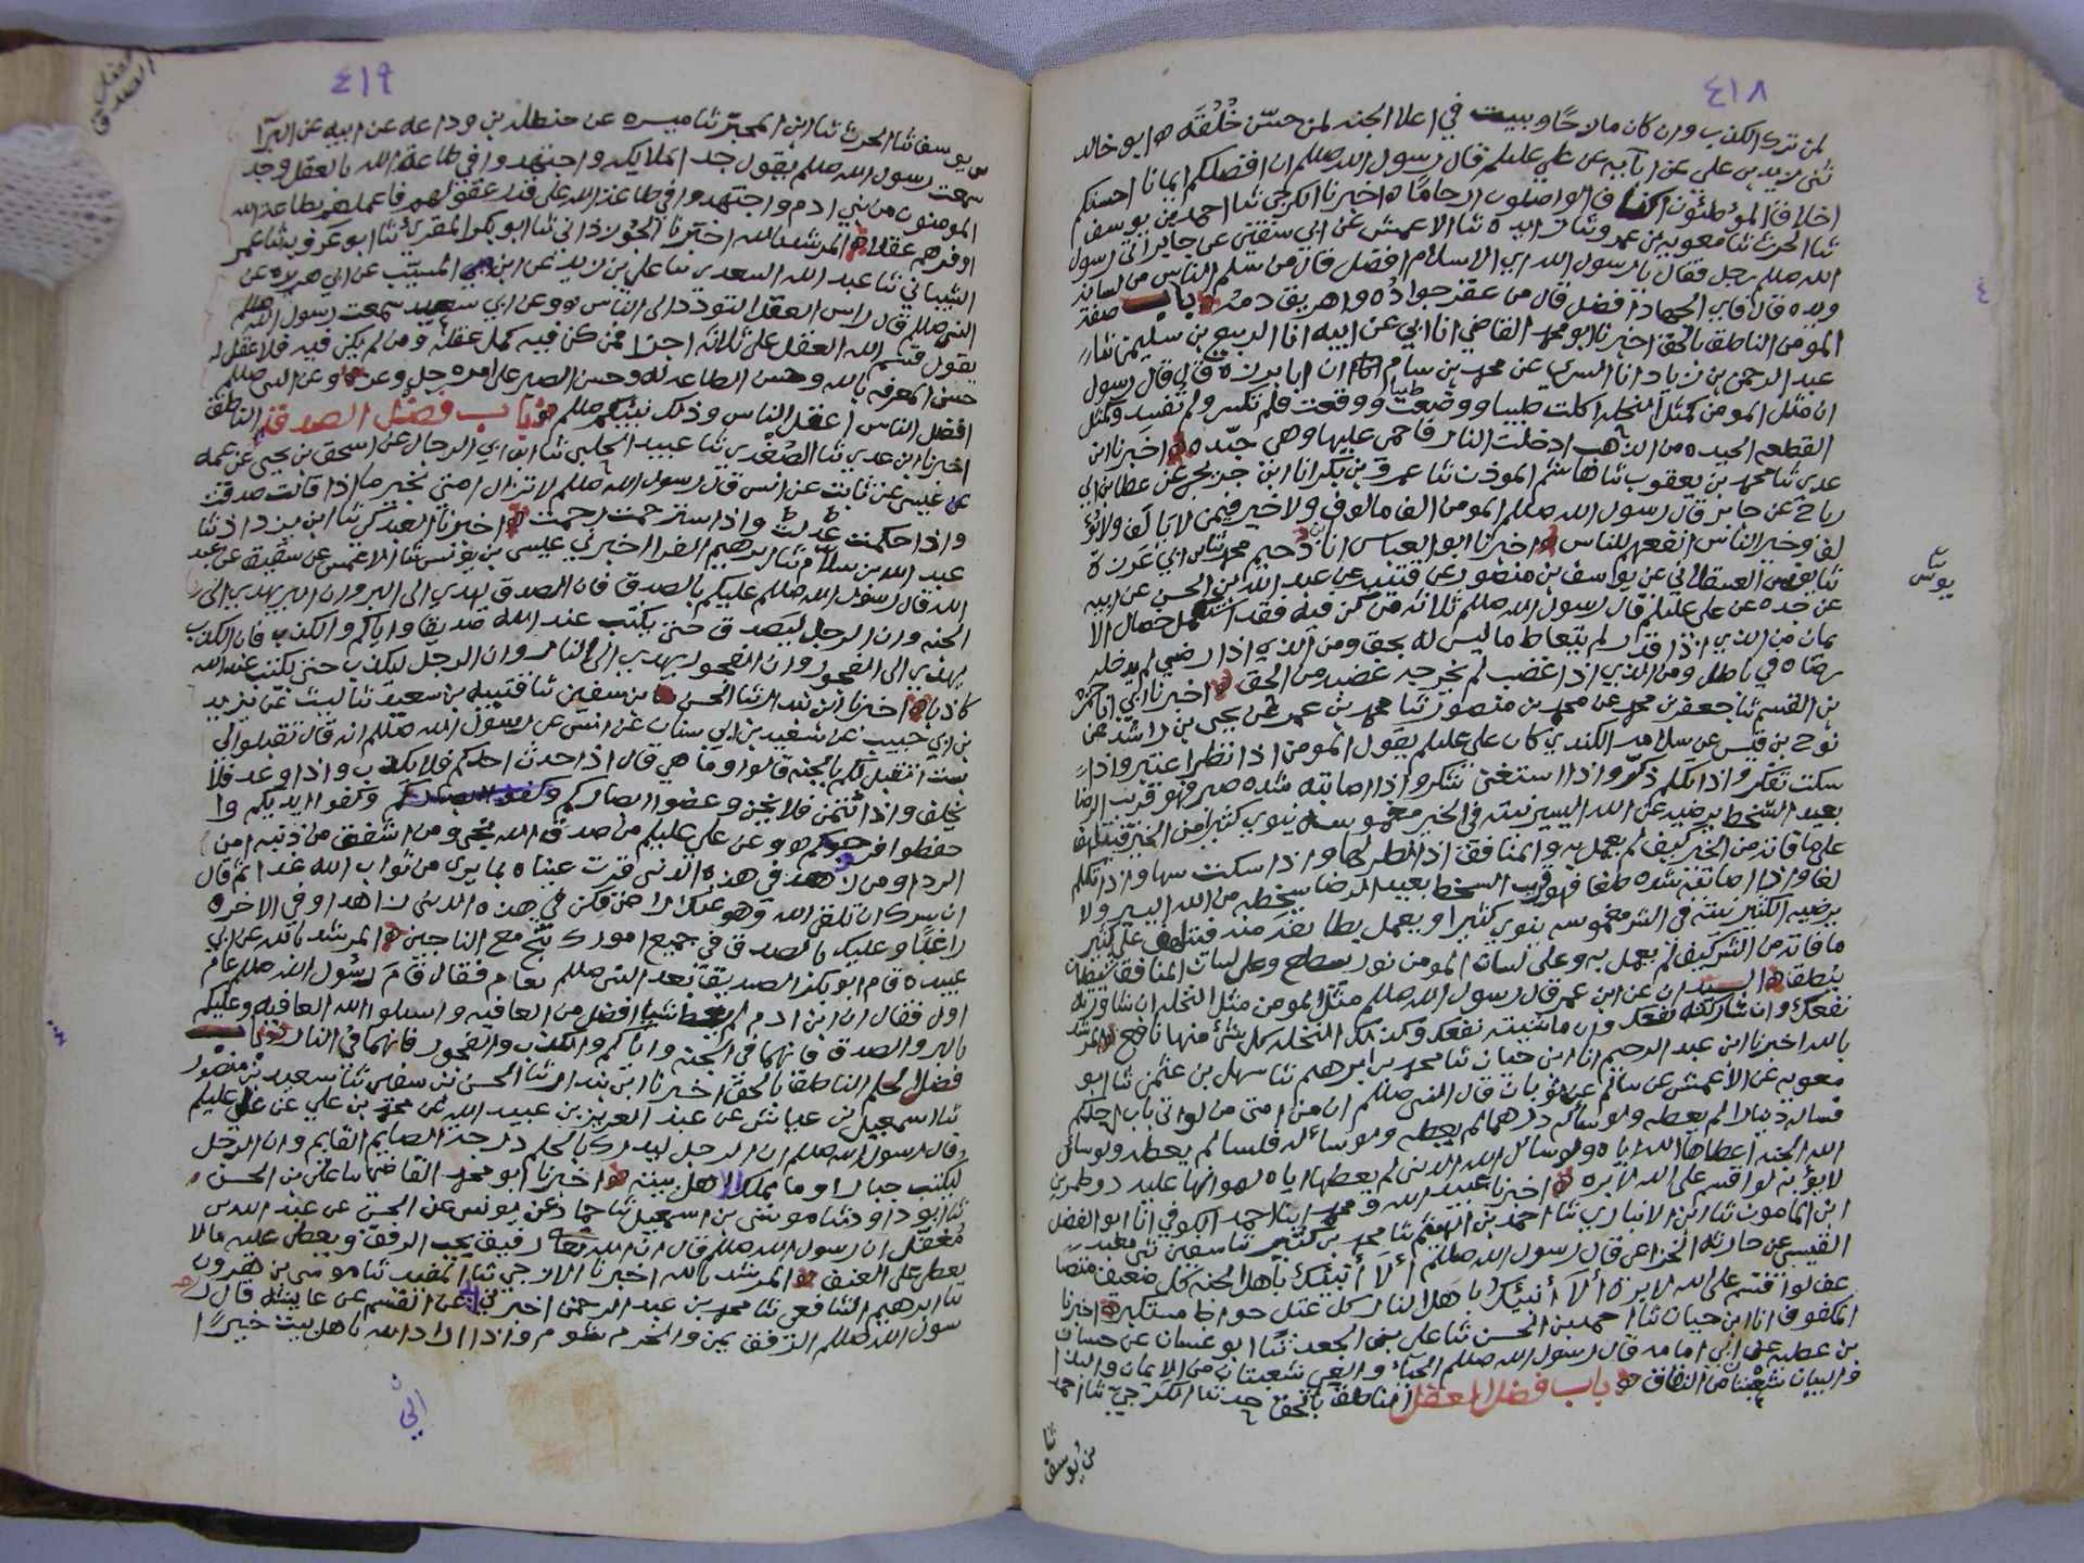 ٤١٨
لمن ترك الكذب وان كان مازحًا وببيت في اعلا الجنه لمن حسّن خُلُقَه ابو خالد
ثنى زيد بن علي عن ابآيه عن علي عليلم قال رسول الله صللم ان افضلكم ايمانا احسنكم
اخلاقا المؤطئون اكنافا الواصلون ارحامًا اخبرنا الكرجي ثنا احمد بن يوسف
ثنا الحرث ثنا معويه بن عمرو ثنا زايده ثنا الاعمش عن ابي سفين عن جابر اتى رسول
الله صللم رجل فقال يا رسول الله اي الاسلام افضل قال من سلم الناس من لسانه
ويده قال فاي الجهاد افضل قال من عقر جواده واهريق دمه باب صفة
المومن الناطق بالحق اخبرنا ابو محمد القاضي انا ابي عن ابيه انا الربيع بن سليمن ثنا
عبد الرحمن بن زياد انا السري عن محمد بن سام ان ابا برزه قال قال رسول
ان مثل المومن كمثل النخله اكلت طيبا ووضعت طيبًا ووقعت فلم تكسر ولم تفسد وكمثل
القطعه الجيده من الذهب ادخلت النار فاحمى عليها وهي جيّده اخبرنا ابن
عدي ثنا محمد بن يعقوب ثنا هاشم الموذن ثنا عمرو بن بكر انا ابن جريج عن عطا بن ابي
رباح عن جابر قال رسول الله صللم المومن الف مالوف ولا خير فيمن لا يالف ولا يؤ
لف وخير الناس انفعهم للناس اخبرنا ابو العباس انا ابن دحيم محمد ثنا ابن ابي غرزة
ثنا يونس العسقلاني عن يواسف بن منصور عن قتيبه عن عبد الله بن الحسن عن ابيه
عن جده عن علي عليلم قال رسول الله صللم ثلاثه من كن فيه فقد استكمل خصال الا
يمان من الذي اذا قدر لم يتعاط ما ليس له بحق ومن الذي اذا رضي لم يدخله
رضاه في باطل ومن الذي اذا غضب لم يخرجه غضبه من الحق اخبرنا ابي انا حمزه
بن القسم ثنا جعفر بن محمد عن محمد بن منصور ثنا محمد بن عمر عن يحيى بن راشد عن
نوح بن قيس عن سلامه الكندي كان علي عليلم يقول المومن اذا نظر اعتبر واذا
سكت تفكر واذا تكلم ذكر واذا استغنى شكر واذا اصابته شده صبر فهو قريب الرضا
بعيد السخط يرضيه عن الله اليسير نيته في الخير مغموسه ينوي كثيرا من الخير فيتلهف
على ما فاته من الخير كيف لم يعمل به والمنافق اذا نظر لها واذا سكت سها واذا تكلم
لغا واذا اصابته شده طغا فهو قريب السخط بعيد الرضا يسخطه من الله اليسير ولا
يرضيه الكثير نيته في الشر مغموسه ينوي كثيرا ويعمل بطايفة منه فيتلهف على كثير
ما فاته من الشر كيف لم يعمل به وعلى لسان المومن نور يسطع وعلى لسان المنافق شيطان
ينطق السيدان عن ابن عمر قال رسول الله صللم مثل المومن مثل النخله ان شاورته
نفعك وان شاركته نفعك وان ماشيته نفعك وكذلك النخله كل شئ منها نافع المرشد
بالله اخبرنا ابن عبد الرحيم انا ابن حيان ثنا محمد بن ابرهيم ثنا سهل بن عثمن ثنا ابو
معويه عن الاعمش عن سالم عن ثوبان قال النبي صللم ان من امتي من لو اتى باب احدكم
فساله دينارا لم يعطه ولو ساله درهما لم يعطه ولو ساله فلسا لم يعطه ولو سال
الله الجنه اعطاها الله اياه ولو سال الله الدنيا لم يعطها اياه لهوانها عليه ذو طمرين
لا يؤبه لو اقسم على الله لابره اخبرنا عبيد الله ومحمد ابنا احمد الكوفي انا ابو الفضل
ابن المامون ثنا ابن الانباري ثنا احمد بن الهيثم ثنا محمد بن كثير ثنا سفين ثنى معبد
القيسي عن حارثه الخزاعي قال رسول الله صللم ألا أنبئك باهل الجنه كل ضعيف متضا
عف لو اقسم على الله لابره ألا أنبئك باهل النار كل عتل جواظ مستكبر اخبرنا
المكفوف انا ابن حيان ثنا احمد بن الحسن ثنا علي بن الجعد ثنا ابو غسان عن حسان
بن عطيه عن ابي امامه قال رسول الله صللم الحيآء والعي شعبتان من الايمان والبذا
والبيان شعبتا من النفاق باب فضل العقل الناطق بالحق حدثنا الكرجي ثنا احمد
يونس
ثنا
بن يوسف
٤١٩
بن يوسف ثنا الحرث ثنا ابن المحبّر ثنا ميسره عن حنظله بن وداعه عن ابيه عن البرآ
سمعت رسول الله صللم يقول جد الملايكه واجتهدوا في طاعة الله بالعقل وجد
المومنون من بني ادم واجتهدوا في طاعة الله على قدر عقولهم فاعملهم بطاعة الله
اوفرهم عقلا المرشد بالله اخبرنا الجوزذاني ثنا ابو بكر المقرئ ثنا ابو عروبه ثنا عمر
الشيباني ثنا عبد الله السعدي ثنا علي بن زيد عن ابن المسيّب عن ابي هريره عن
النبي صللم قال راس العقل التودد الى الناس وعن ابي سعيد سمعت رسول الله صللم
يقول قسم الله العقل على ثلاثه اجزا فمن كن فيه كمل عقله ومن لم يكن فيه فلا عقل له
حسن المعرفه بالله وحسن الطاعه له وحسن الصبر على امره جل وعز وعن النبي صللم
افضل الناس اعقل الناس وذلك نبيكم صللم باب فضل الصدق الناطق
اخبرنا ابن عدي ثنا الصُغْدي ثنا عبيد الحلبي ثنا ابن ابي الرجال عن اسحق بن يحيى عن عمه
عن ثابت عن انس قال رسول الله صللم لا تزال امتي بخير ما اذا قالت صدقت
واذا حكمت عدلت واذا سترحمت رحمت اخبرنا العبدكي ثنا ابن يزداذ ثنا
عبد الله بن سلام ثنا ابرهيم الفرا اخبرني عيسى بن يونس ثنا الاعمش عن شقيق عن عبد
الله قال رسول الله صللم عليكم بالصدق فان الصدق يهدي الى البر وان البر يهدي الى
الجنه وان الرجل ليصدق حتى يكتب عند الله صديقا واياكم والكذب فان الكذب
يهدي الى الفجور وان الفجور يهدي الى النار وان الرجل ليكذب حتى يكتب عند الله
كاذبا اخبرنا ابن بندار ثنا الحسن بن سفين ثنا قتيبه بن سعيد ثنا ليث عن يزيد
بن ابي حبيب عن سعيد بن ابي سنان عن انس عن رسول الله صللم انه قال تقبلوا لي
بست اتقبل لكم بالجنه قالوا وما هي قال اذا حدث احدكم فلا يكذب واذا وعد فلا
يخلف واذا ائتمن فلا يخن وغضوا ابصاركم وكفوا ايديكم وا
حفظوا فروجكم وعن علي عليلم من صدق الله نجى ومن اشفق من ذنبه امن
الردا ومن زهد في هذه الدنيى قرت عيناه بما يرى من ثواب الله غدا ثم قال
ان سرك ان تلقى الله وهو عنك راض فكن في هذه الدنيى زاهدا وفي الاخره
راغبًا وعليك بالصدق في جميع امورك تنج مع الناجين المرشد بالله عن ابي
عبيده قام ابو بكر الصديق بعد النبي صللم بعام فقال قام رسول الله صللم عام
اول فقال ان ابن ادم لم يعط شيا افضل من العافيه واسلوا الله العافيه وعليكم
بالبر والصدق فانهما في الجنه واياكم والكذب والفجور فانهما في النار باب
فضل الحلم الناطق بالحق اخبرنا ابن بندار ثنا الحسن بن سفين ثنا سعيد بن منصور
ثنا اسمعيل بن عياش عن عبد العزيز بن عبيد الله عن محمد بن علي عن علي عليلم
قال رسول الله صللم ان الرجل ليدرك بالحلم درجة الصايم القايم وان الرجل
ليكتب جبارا وما يملك الا اهل بيته اخبرنا ابو محمد القاضي ثنا علي بن الحسن
ثنا ابو داود ثنا موسى بن اسمعيل ثنا حماد عن يونس عن الحسن عن عبد الله بن
مُغفّل ان رسول الله صللم قال ان الله رفيق يحب الرفق ويعطى عليه مالا
يعطى على العنف المرشد بالله اخبرنا الازجي ثنا المفيد ثنا موسى بن هرون
ثنا ابرهيم الشافعي ثنا محمد بن عبد الرحمن اخبرني ابي عن القسم عن عايشه قال ر
سول الله صللم الرفق يمن والخرم شوم واذا اراد الله باهل بيت خيرًا
الصدق